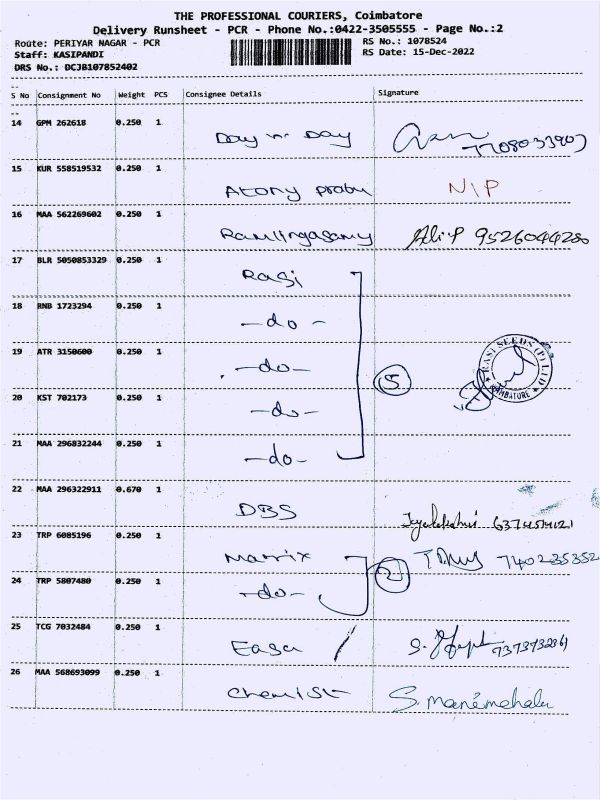 THE PROFESSIONAL COURIERS, Coimbatore
Delivery Runsheet - PCR - Phone No.:0422-3505555 - Page No.:2
Route: PERIYAR NAGAR - PCR
RS No.: 1078524
Staff: KASIPANDI
RS Date: 15-Dec-2022
DRS No.: DCJB107852402
S No Consignment No Weight PCS Consignee Details Signature
14 GPM 262618 0.250 1
Day n Day 7708033903
15 KUR 558519532 0.250 1
Atony prabu N/P
16 MAA 562269602 0.250 1
Ramlingasamy 9526044280
17 BLR 5050853329 0.250 1
Rasi
18 RNB 1723294 0.250 1
-do-
19 ATR 3150600 0.250 1
-do- 5 RASI SEEDS (P) LTD COIMBATORE
20 KST 702173 0.250 1
-do-
21 MAA 296832244 0.250 1
-do-
22 MAA 296322911 0.670 1
DBS
23 TRP 6085196 0.250 1
Matrix 2 740235352
24 TRP 5807480 0.250 1
-do-
25 TCG 7032484 0.250 1
Easa
26 MAA 568693099 0.250 1
Chemist S. Manemehala